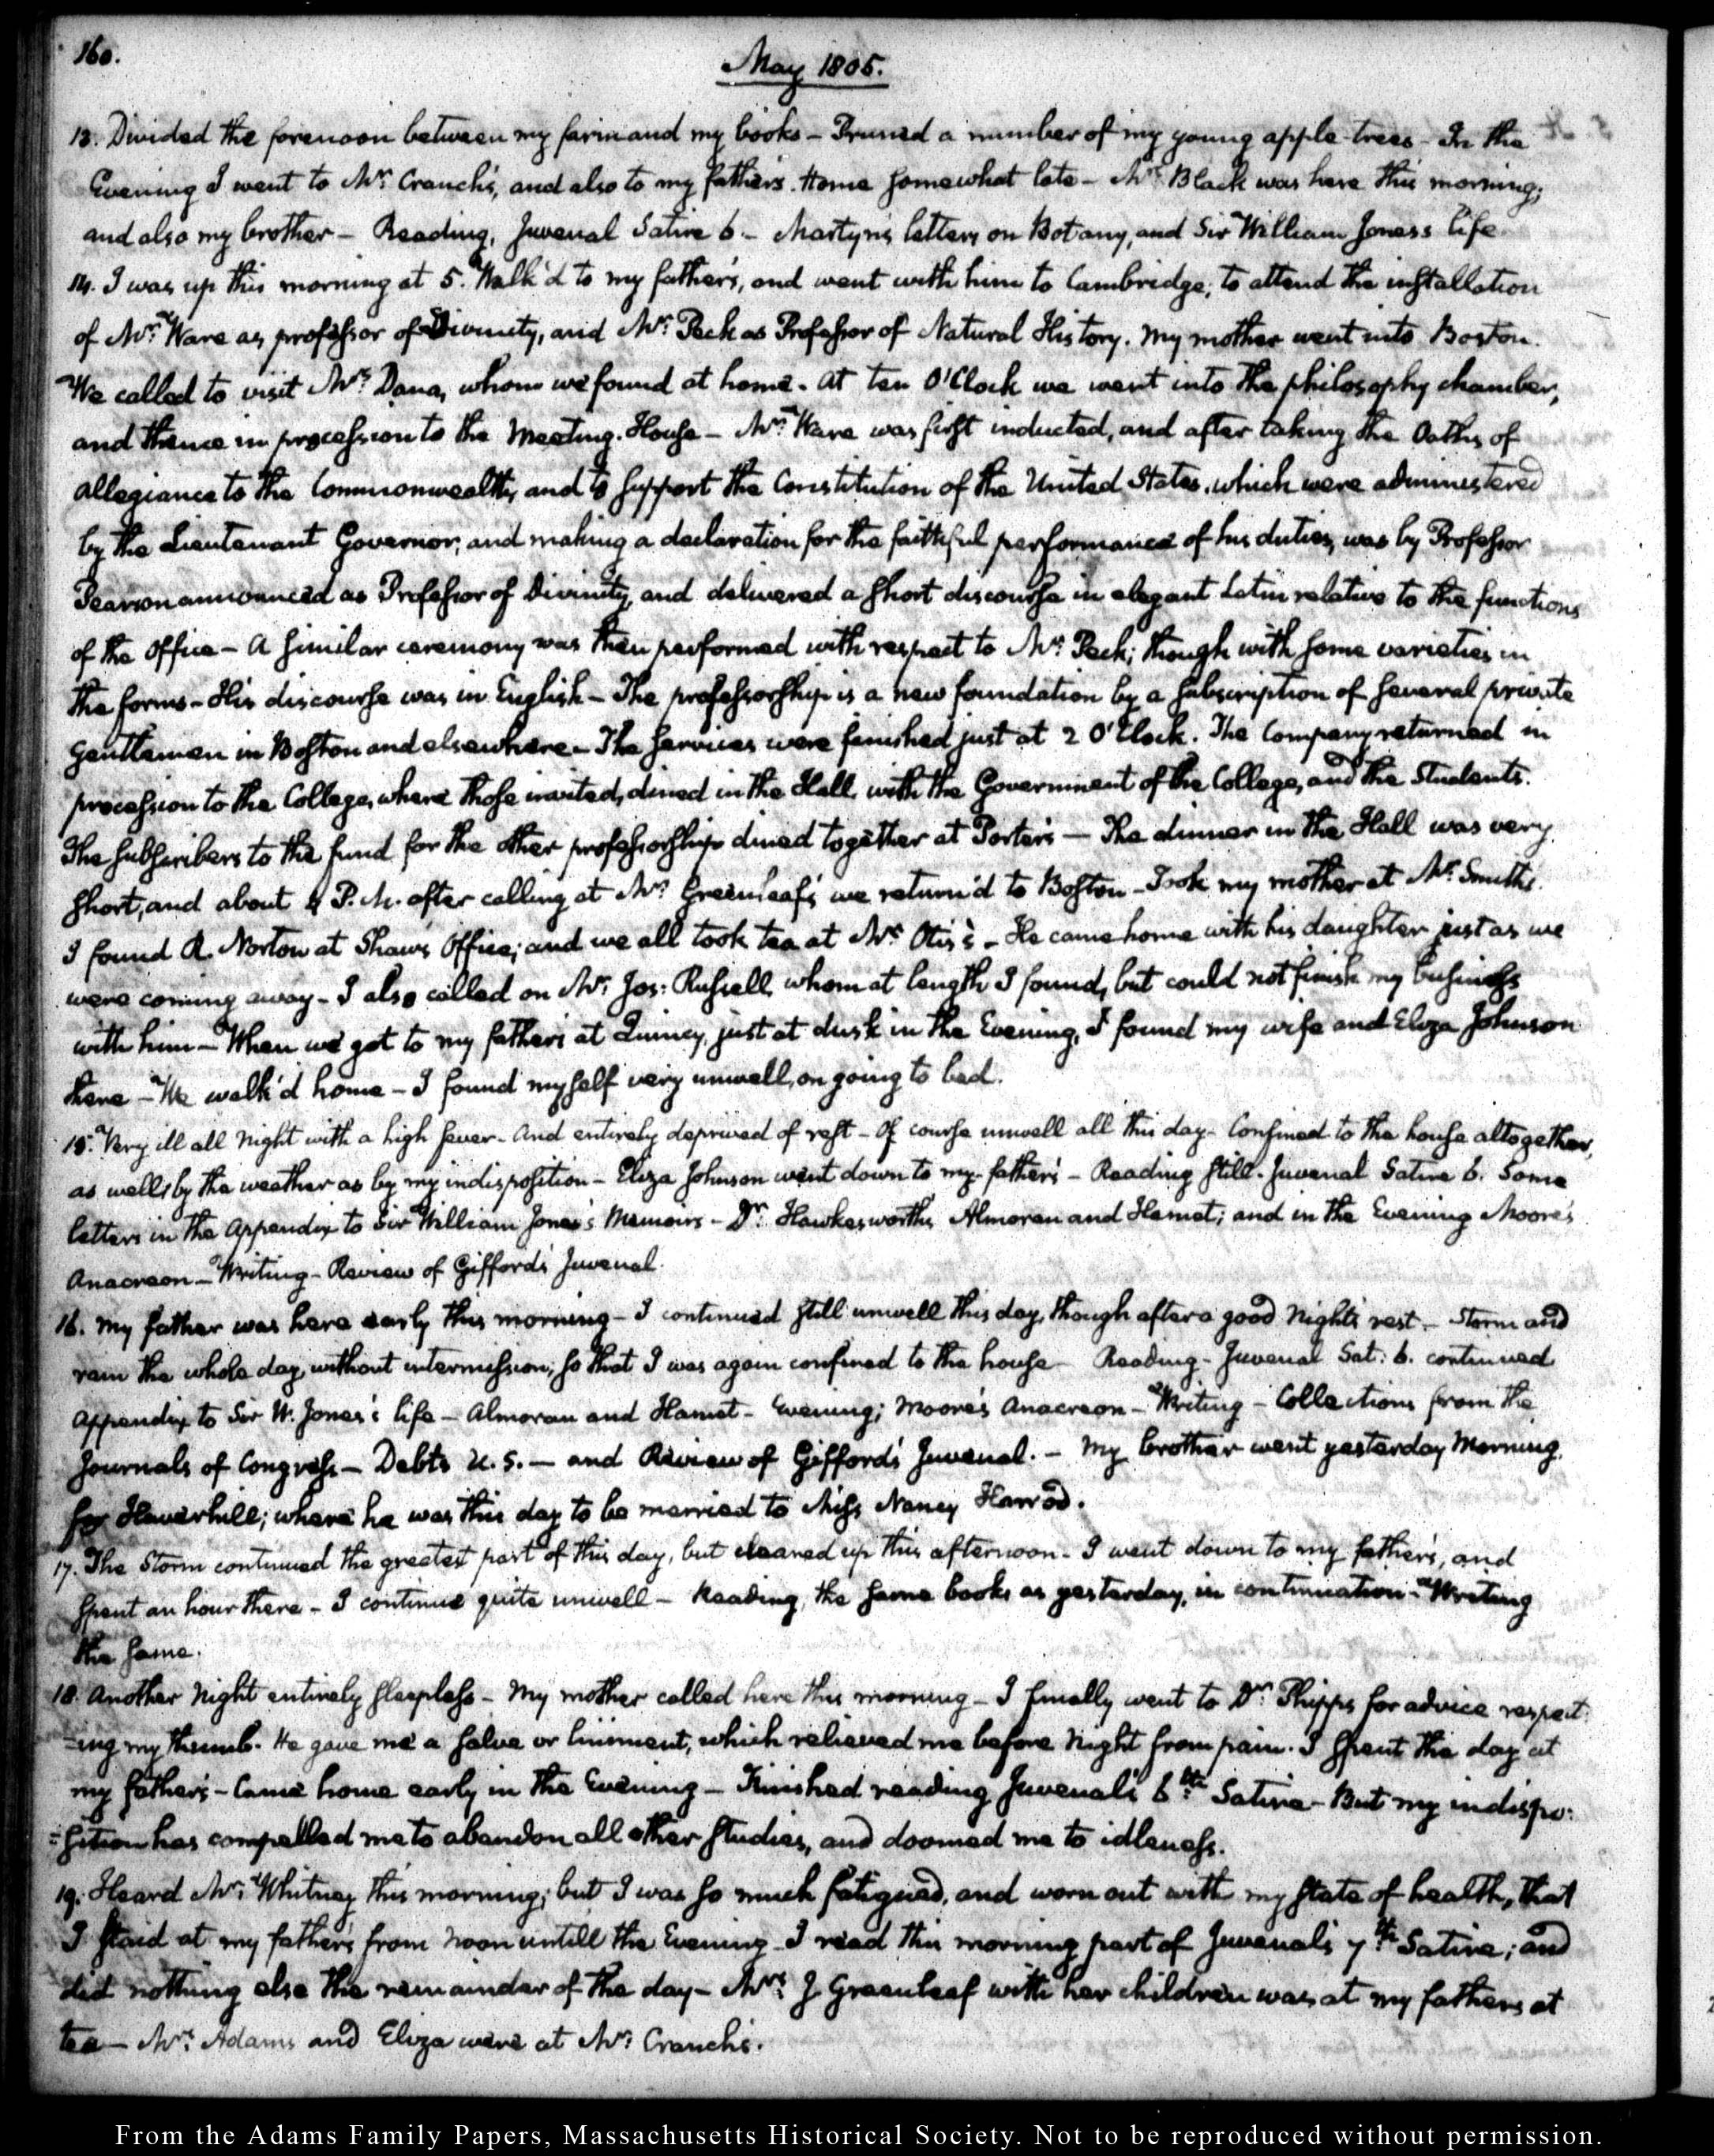 160.
May 1805.
13. Divided the forenoon between my farm and my books — Pruned a number of my young apple-trees — In the
Evening I went to Mr. Cranch's, and also to my father's. Home somewhat late — Mr. Black was here this morning;
and also my brother — Reading, Juvenal Satire 6. — Martyn's letters on Botany, and Sir William Jones's life.
14. I was up this morning at 5. Walk'd to my father's, and went with him to Cambridge; to attend the installation
of Mr. Ware as professor of Divinity, and Mr. Peck as Professor of Natural History. My mother went into Boston.
We called to visit Mr. Dana, whom we found at home. At ten O'Clock we went into the philosophy chamber,
and thence in procession to the Meeting-House — Mr. Ware was first inducted, and after taking the Oaths of
allegiance to the Commonwealth, and to support the Constitution of the United States, which were administered
by the Lieutenant Governor, and making a declaration for the faithful performance of his duties, was by Professor
Pearson announced as Professor of Divinity, and delivered a short discourse in elegant Latin relative to the functions
of the Office — A similar ceremony was then performed with respect to Mr. Peck; though with some varieties in
the forms — His discourse was in English — The professorship is a new foundation by a subscription of several private
gentlemen in Boston and elsewhere — The services were finished just at 2 O'Clock. The Company returned in
procession to the College, where those invited, dined in the Hall, with the Government of the College, and the Students.
The subscribers to the fund for the other professorship dined together at Porter's — The dinner in the Hall was very
short, and about 4 P.M. after calling at Mr. Greenleaf's we return'd to Boston — Took my mother at Mr. Smith's.
I found R. Norton at Shaw's Office; and we all took tea at Mr. Otis's — He came home with his daughter just as we
were coming away — I also called on Mr. Jos: Russell, whom at length I found, but could not finish my business
with him — When we got to my father's at Quincy, just at dusk in the Evening, I found my wife and Eliza Johnson
there — We walk'd home — I found myself very unwell, on going to bed.
15. Very ill all Night with a high fever — And entirely deprived of rest — Of course unwell all this day — Confined to the house altogether,
as well by the weather as by my indisposition — Eliza Johnson went down to my father's — Reading still — Juvenal Satire 6. Some
letters in the Appendix to Sir William Jones's Memoirs — Dr. Hawkesworth's Almoran and Hamet; and in the Evening Moore's
Anacreon — Writing — Review of Gifford's Juvenal.
16. My father was here early this morning — I continued still unwell this day, though after a good Night's rest — Storm and
rain the whole day without intermission; so that I was again confined to the house — Reading — Juvenal Sat: 6. continued
Appendix to Sir W. Jones's life — Almoran and Hamet — Evening; Moore's Anacreon — Writing — Collections from the
Journals of Congress — Debts U.S. — and Review of Gifford's Juvenal. — My brother went yesterday Morning
for Haverhill; where he was this day to be married to Miss Nancy Harrod.
17. The Storm continued the greatest part of this day, but cleared up this afternoon — I went down to my father's, and
spent an hour there — I continue quite unwell — Reading, the same books as yesterday, in continuation — Writing
the same.
18. Another Night entirely sleepless — My mother called here this morning — I finally went to Dr. Phipps for advice respect-
=ing my thumb. He gave me a salve or liniment, which relieved me before Night from pain. I spent the day at
my father's — Came home early in the Evening — Finished reading Juvenal's 6th. Satire — But my indispo:
=sition has compelled me to abandon all other studies, and doomed me to idleness.
19. Heard Mr. Whitney this morning; but I was so much fatigued, and worn out with my state of health, that
I staid at my father's from Noon untill the Evening — I read this morning part of Juvenal's 7th. Satire; and
did nothing else the remainder of the day — Mrs. J. Greenleaf with her children was at my father's at
tea — Mrs. Adams and Eliza were at Mr. Cranch's.
From the Adams Family Papers, Massachusetts Historical Society. Not to be reproduced without permission.